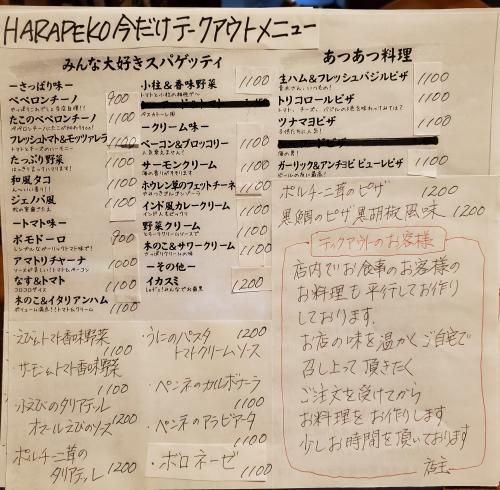 HARAPEKO今だけテークアウトメニュー
みんな大好きスパゲッティ
ーさっぱり味ー
ペペロンチーノ 900
たこのペペロンチーノ 1100
フレッシュトマト&モッツァレラ 1100
たっぷり野菜 1100
和風タコ 1100
ジェノバ風 1100
ートマト味ー
ポモドーロ 900
アマトリチャーナ 1100
なす&トマト 1100
きのこ&イタリアンハム 1100
小柱&香味野菜 1100
ークリーム味ー
ベーコン&ブロッコリー 1100
サーモンクリーム 1100
ホウレン草のフェットチーネ 1100
インド風カレークリーム 1100
野菜クリーム 1100
きのこ&サワークリーム 1100
ーその他ー
イカスミ 1200
えび&トマト香味野菜 1100
サーモン&トマト香味野菜 1100
小えびのタリアテッレ
オマールえびのソース 1200
ポルチーニ茸の
タリアテッレ 1200
うにのパスタ 1200
トマトクリームソース
・ペンネのカルボナーラ 1100
・ペンネのアラビアータ 1100
・ボロネーゼ 1100
あつあつ料理
生ハム&フレッシュバジルピザ 1100
トリコロールピザ 1100
ツナマヨピザ 1100
ガーリック&アンチョビ ピューレピザ 1100
ポルチーニ茸のピザ 1200
黒鯛のピザ 黒胡椒風味 1200
テイクアウトのお客様
店内でお食事のお客様の
お料理も平行してお作り
しております.
お店の味を温かくご自宅で
召し上って頂きたく
ご注文を受けてから
お料理をお作りします
少しお時間を頂いております
店主